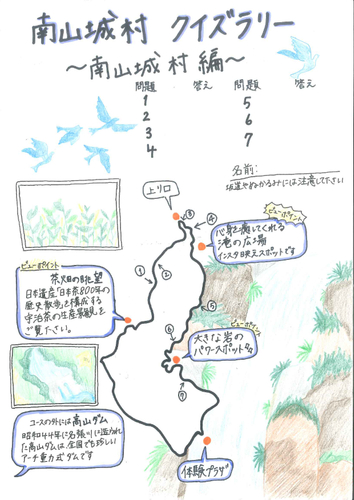 南山城村 クイズラリー
～南山城村編～
問題 答え 問題 答え
1 5
2 6
3 7
4
名前:
坂道やぬかるみには注意して下さい
上り口
③
④
ビューポイント
心身を癒してくれる
滝の広場
インスタ映えスポットです
ビューポイント
茶畑の眺望
日本遺産「日本茶800年の
歴史散歩」が構成する
宇治茶の生産景観を
ご覧ださい。
①
②
⑤
⑥
ビューポイント
大きな岩の
パワースポット
⑦
コースの外には高山ダム
昭和44年に名張川に造られ
た高山ダムは、全国でも珍しい
アーチ重力式ダムです
体験プラザ